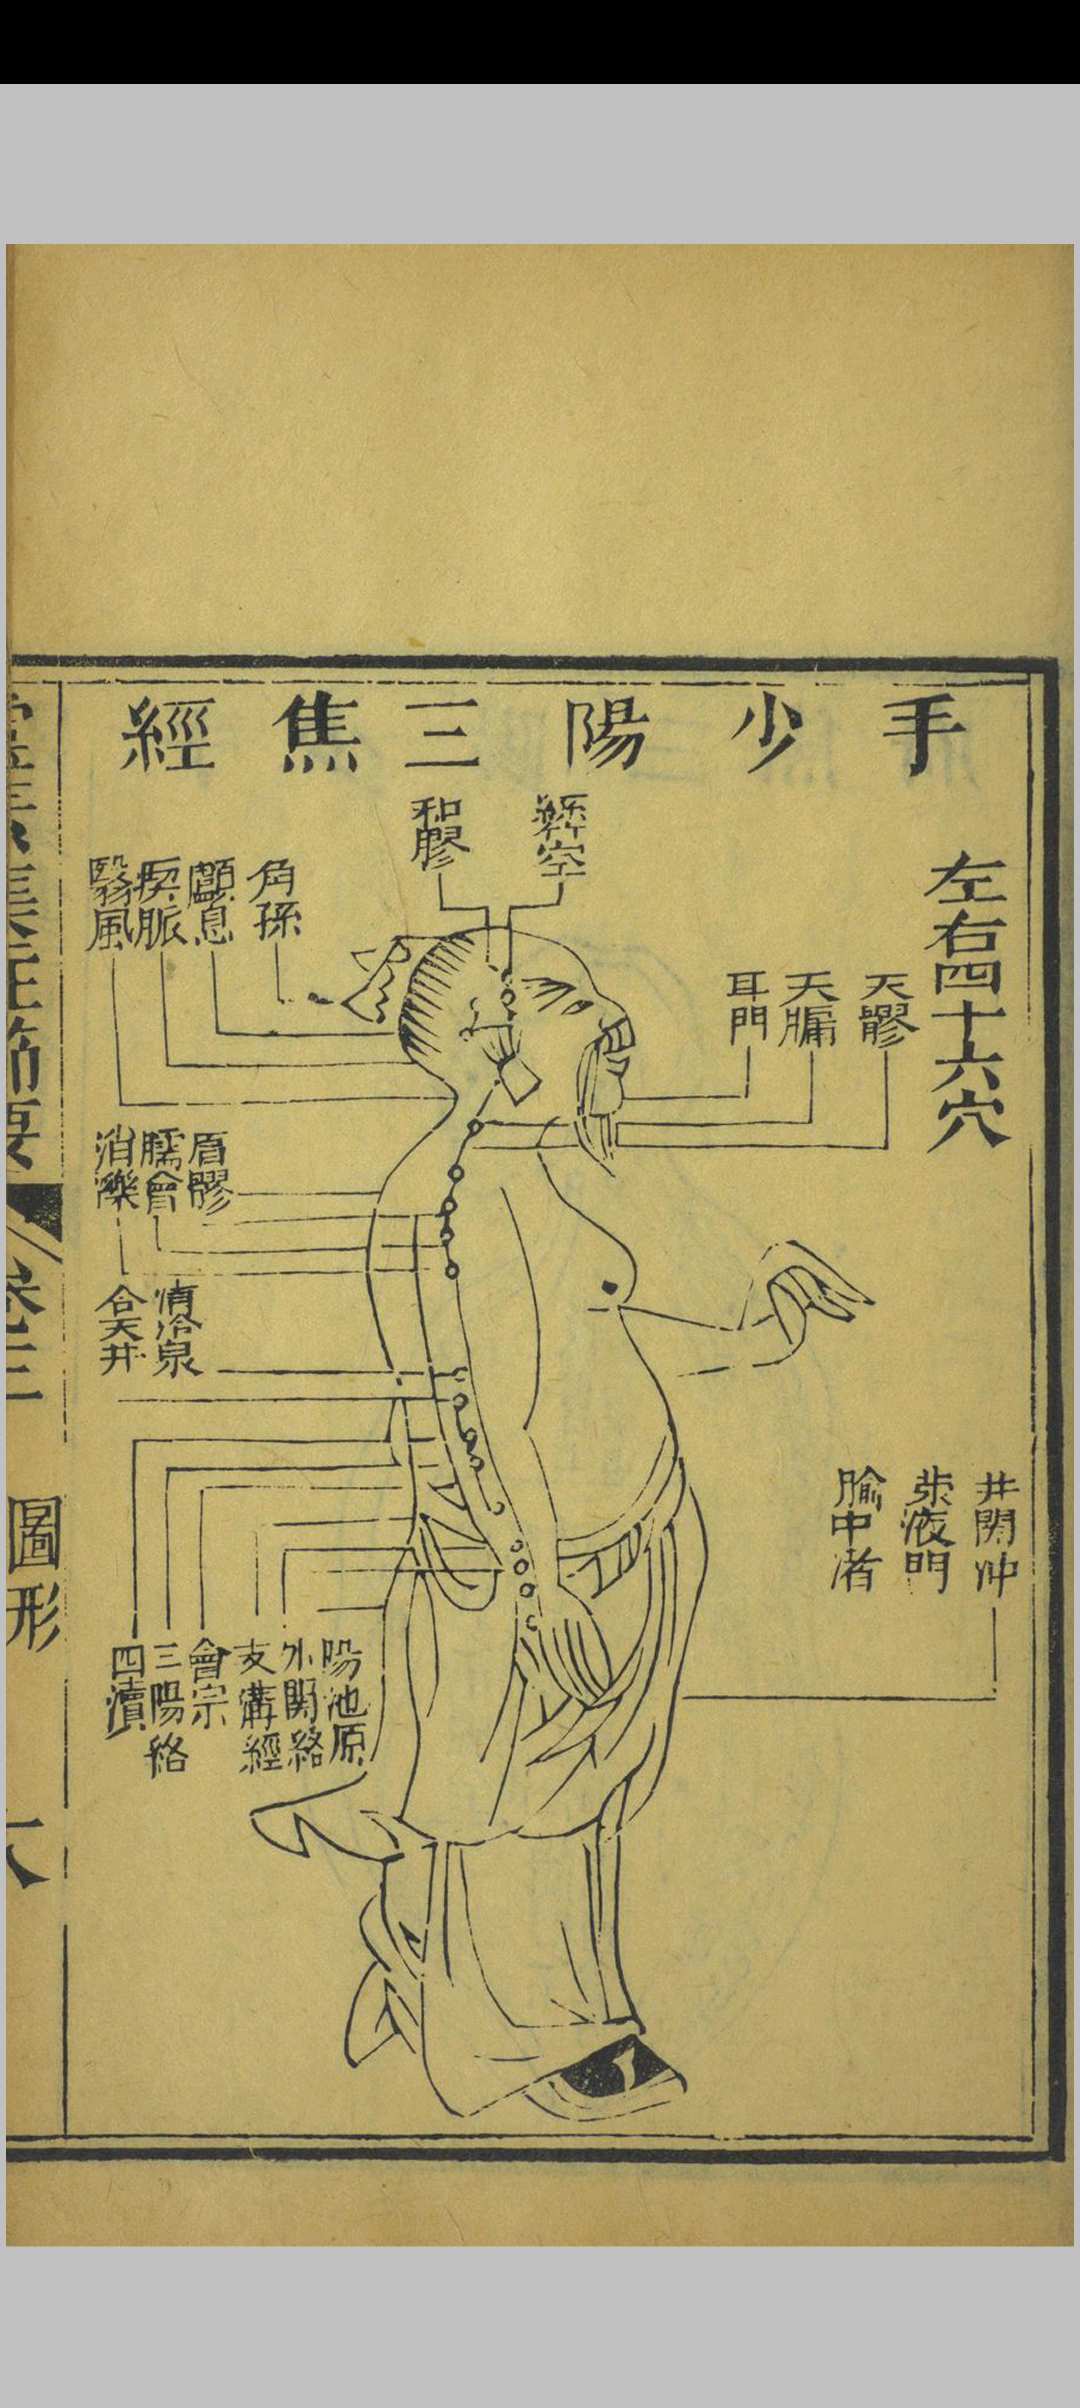 手少陽三焦經
左右四十六穴
天髎
天牖
耳門
井關沖
滎液門
腧中渚
和髎
角孫
顱息
翳風
肩髎
臑會
消濼
清冷泉
合天井
陽池原
外關絡
支溝經
會宗
三陽絡
四瀆
節要
卷三
圖形